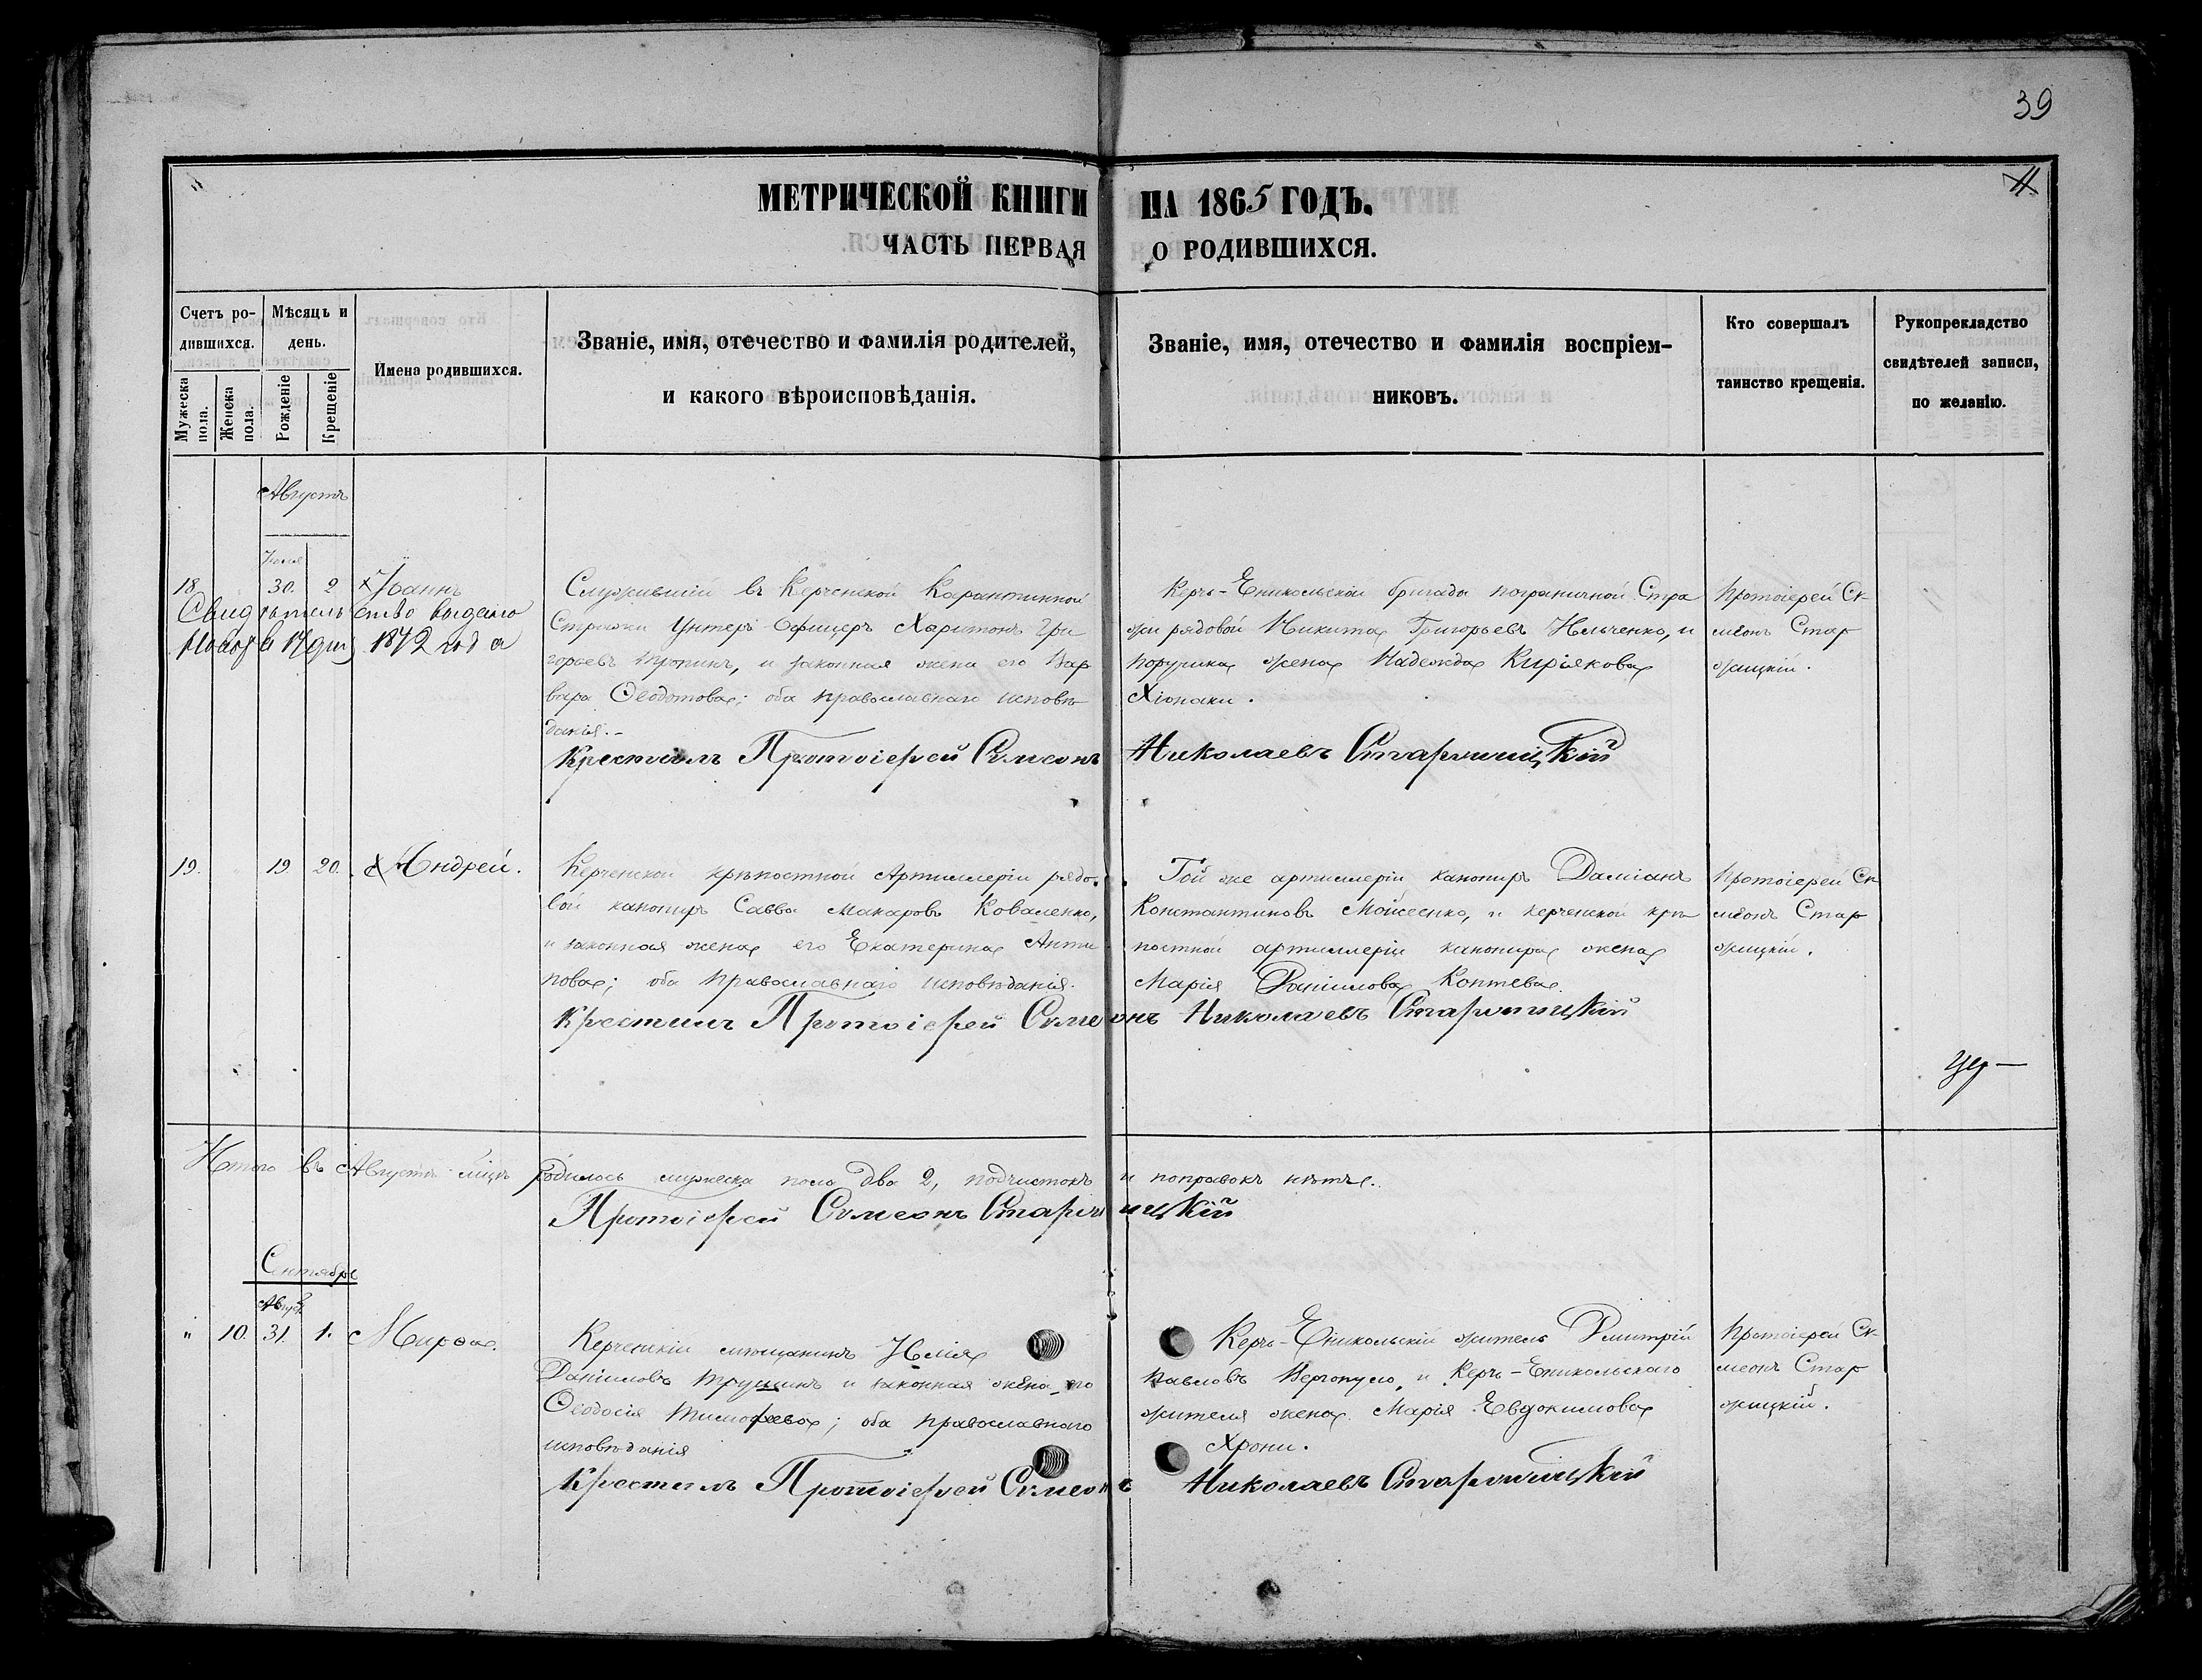 39
МЕТРИЧЕСКОЙ КНИГИ НА 1865 ГОДЪ.
ЧАСТЬ ПЕРВАЯ О РОДИВШИХСЯ.
Счетъ ро-
дившихся.
Мужеска
пола.
Женска
пола.
Мѣсяцъ и
день.
Рожденіе
Крещеніе
Имена родившихся.
Званіе, имя, отечество и фамилія родителей,
и какого вѣроисповѣданія.
Званіе, имя, отечество и фамилія воспріем-
никовъ.
Кто совершалъ
таинство крещенія.
Рукоприкладство
свидѣтелей записи,
по желанію.
Августъ
Іюля
18. 30. 2 Іоаннъ
Свидѣтельство выдано
Ноября 17 дня 1872 года
Служившій въ Керченской Карантинной
Стражи Унтеръ Офицеръ Харитонъ Гри
горьевъ, и законная жена его Вар
вара Ѳеодотова; оба православнаго исповѣ
данія.-
Керчь-Еникольской бригады пограничной Стра
жи рядовой Никита Григорьевъ Нельченко, и
порутчика жена Надежда Киріякова
Хіонаки.
Протоіерей Си
меонъ Стар
жицкій.
Крестилъ Протоіерей Симеонъ Николаевъ Старжицкій
19. 19 20. Андрей.
Керченской крѣпостной Артиллеріи рядо-
вой канониръ Савва Макаровъ Коваленко,
и законная жена его Екатерина Анти
пова; оба православнаго исповѣданія.
Той же артиллеріи канониръ Даміанъ
Константиновъ Мойсеенко, и керченской крѣ
постной артиллеріи канонира жена
Марія Даніилова Коптева.
Протоіерей Си
меонъ Стар
жицкій.
Крестилъ Протоіерей Симеонъ Николаевъ Старжицкій
Итого въ Августѣ мцѣ родилось мужеска пола два 2, подчистокъ и поправокъ нѣтъ.
Протоіерей Симеонъ Старжицкій
Сентябрь
Август
" 10. 31. 1. Марѳа.
Керченскій мѣщанинъ Илія
Даніиловъ Трушинъ и законная жена его
Ѳеодосія Тимоѳеева; оба православнаго
исповѣданія
Керчь-Еникольскій житель Дмитрій
Павловъ Вергопуло, и Керчь-Еникольскаго
жителя жена Марія Евдокимова
Хрони.
Протоіерей Си
меонъ Стар
жицкій.
Крестилъ Протоіерей Симеонъ Николаевъ Старжицкій